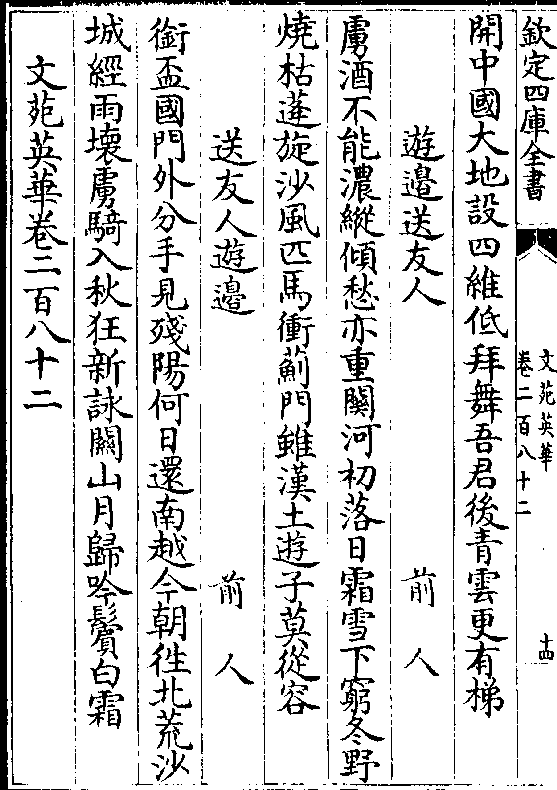 欽定四庫全書
文苑英華
卷二百八十二
十四
開中國大地設四維低拜舞吾君後青雲更有梯
遊邊送友人 前人
虜酒不能濃縱傾愁亦重關河初落日霜雪下窮冬野
燒枯蓬旋沙風匹馬衝薊門雖漢土遊子莫從容
送友人遊邊 前人
銜盃國門外分手見殘陽何日還南越今朝往北荒沙
城經雨壞虜騎入秋狂新詠關山月歸吟鬢白霜
文苑英華卷二百八十二